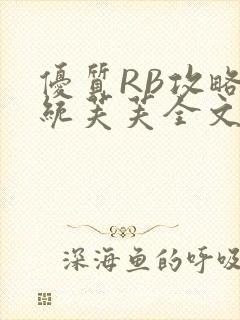 優質RB攻略
統芙芙全文
深海鱼的呼吸